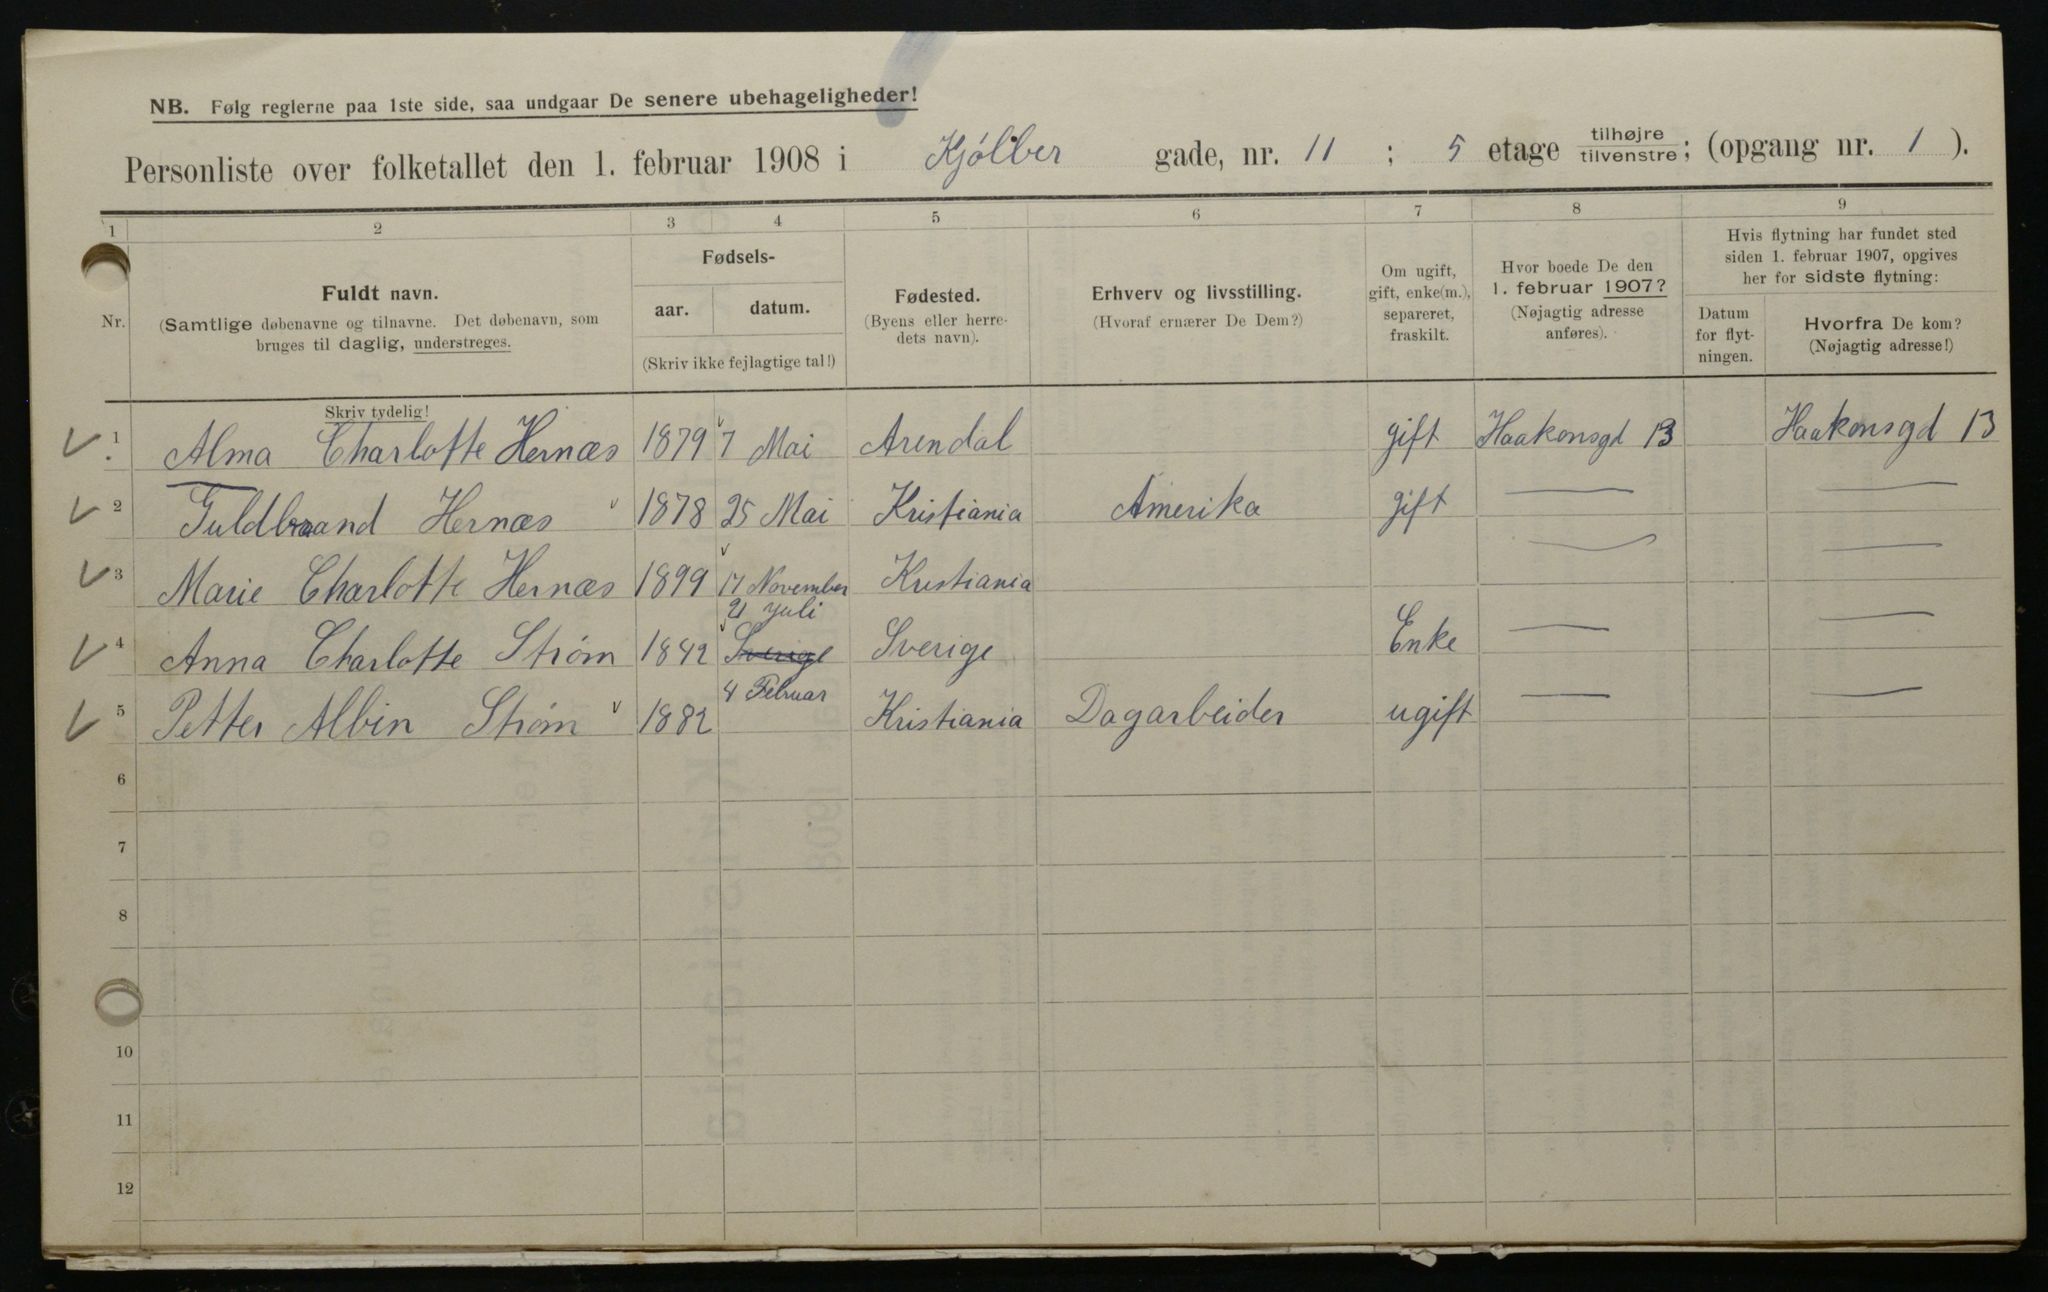 NB. Følg reglerne paa 1ste side, saa undgaar De senere ubehageligheder!
Personliste over folketallet den 1. februar 1908 i Kjølber gade, nr. 11 ; 5 etage tilhøjre/tilvenstre; (opgang nr. 1 ).
1 2 3 4 5 6 7 8 9
Nr.
Fuldt navn.
(Samtlige døbenavne og tilnavne. Det døbenavn, som
bruges til daglig, understreges.
Skriv tydelig!
Fødsels-
aar. datum.
(Skriv ikke fejlagtige tal!)
Fødested.
(Byens eller herre-
dets navn).
Erhverv og livsstilling.
(Hvoraf ernærer De Dem?)
Om ugift,
gift, enke(m.),
separeret,
fraskilt.
Hvor boede De den
1. februar 1907?
(Nøjagtig adresse
anføres).
Hvis flytning har fundet sted
siden 1. februar 1907, opgives
her for sidste flytning:
Datum
for flyt-
ningen.
Hvorfra De kom?
(Nøjagtig adresse!)
1 Alma Charlotte Hernæs 1879 7 Mai Arendal gift Haakonsgd 13 Haakonsgd 13
2 Guldbrand Hernæs 1878 25 Mai Kristiania Amerika gift — —
3 Marie Charlotte Hernæs 1899 17 November Kristiania — —
21 Juli
4 Anna Charlotte Strøm 1842 Sverige Sverige Enke — —
4 Februar
5 Petter Albin Strøm 1882 Kristiania Dagarbeider ugift — —
6
7
8
10
11
12